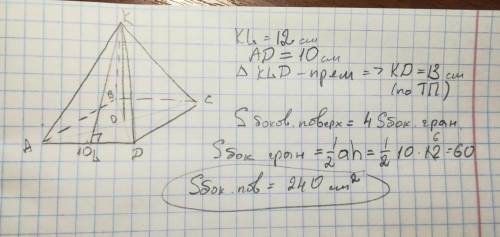 K
B
C
O
A
10
L
D
KL = 12 см
AD = 10 см
Δ KLD - прям => KD = 13 см
(по ТП)
S боков. поверх = 4 S бок. гран.
S бок гран = 1/2 ah = 1/2 10 · 12 6 = 60
S бок. пов = 240 см²